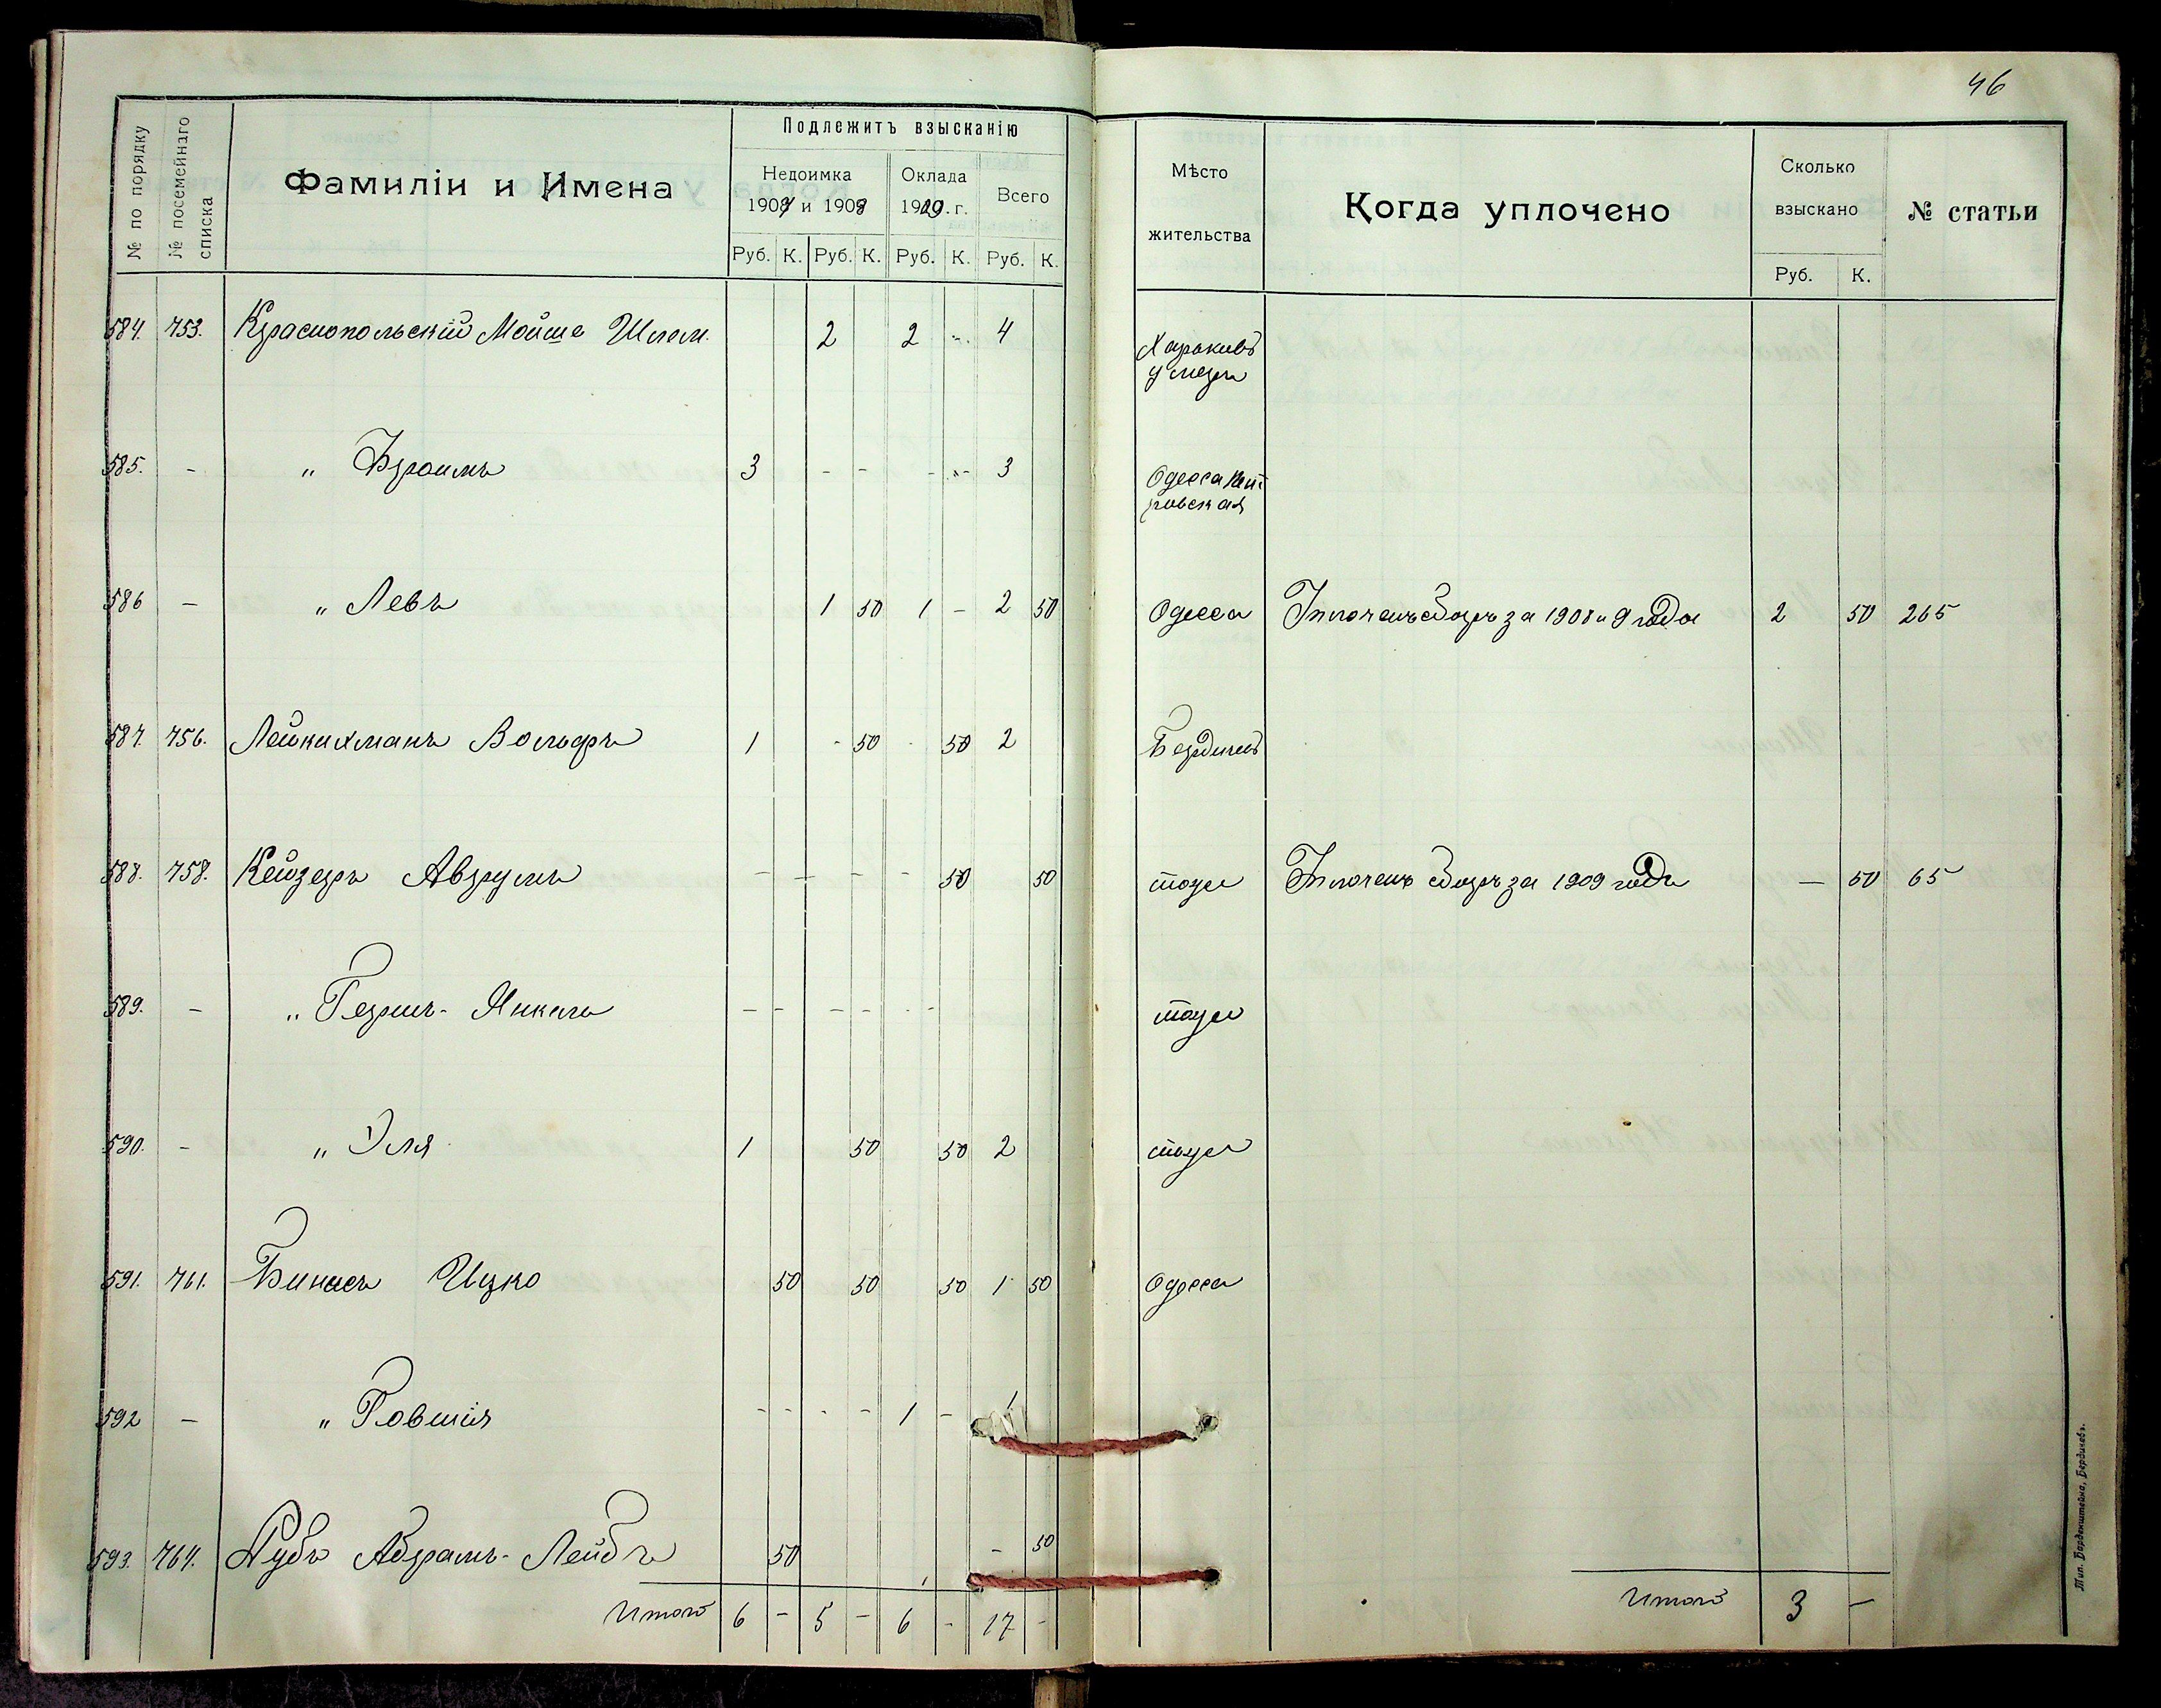 46
№ по порядку
№ посемейнаго списка
Фамиліи и Имена
Подлежитъ взысканію
Недоимка
1907 и 1908
Оклада
1909 г.
Всего
Руб. К. Руб. К. Руб. К. Руб. К.
Мѣсто
жительства
Когда уплочено
Сколько
взыскано
Руб. К.
№ статьи
584. 753. Краснопольскій Мойше Шлом. 2 2 - 4 Харьковъ
585. - " Ефроимъ 3 - - - - 3 Одесса
586 - " Левъ 1 50 1 - 2 50 Одесса Уплоченъ сборъ за 1908 и 9 года 2 50 265
587. 756. Лейкихманъ Вольфъ 1 - 50 - 50 2 Бердичевъ
588. 758. Кейзеръ Аврумъ - - - - - 50 50 тоже Уплоченъ сборъ за 1909 годъ — 50 65
589. - " Гершъ-Янкель - - - - - - тоже
590. - " Эля 1 50 50 2 тоже
591. 761. Бинасъ Ицко 50 50 50 1 50 Одесса
592 - " Ровшія - - - - 1 - 1
593. 764. Абрамъ-Лейбъ 50 - 50
Итого 6 - 5 - 6 - 17 -
Итого 3 —
Тип. Барденштейна, Бердичевъ.